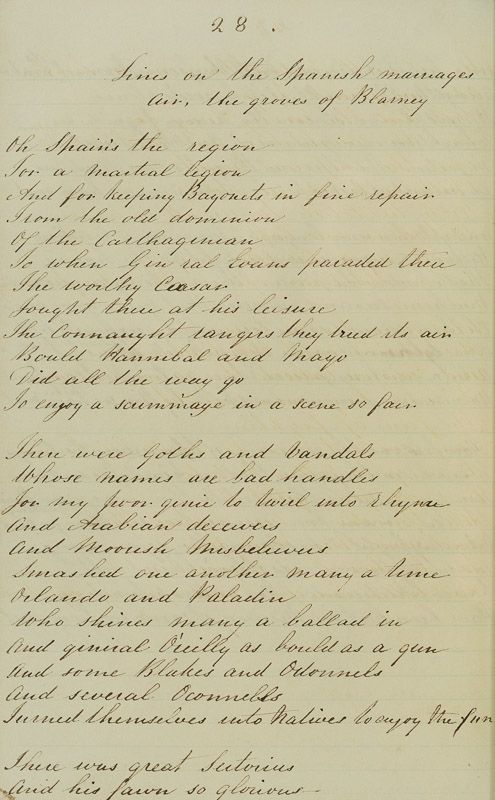 28.
Lines on the Spanish marriages
Air, the groves of Blarney
Oh Spain's the region
For a martial legion
And for keeping Bayonets in fine repair
From the old dominion
Of the Carthagenian
To when Gin'ral Evans paraded there
The worthy Ceasar
fought there at his leisure
The Connaught rangers they tried its air
Bould Hannibal and Mayo
Did all the way go
To enjoy a scrimmage in a scene so fair
There were Goths and Vandals
Whose names are bad handles
for my poor genie to twirl into rhyme
And Arabian deceivers
And Moorish Misbelievers
Smashed one another many a time
Orlando and Paladin
Who shines many a ballad in
And giniral O'reilly as bould as a gun
And some Blakes and Odonnels
And several Oconnells
Turned themselves into Natives to enjoy the fun
There was great Sertorius
And his fawn so glorious